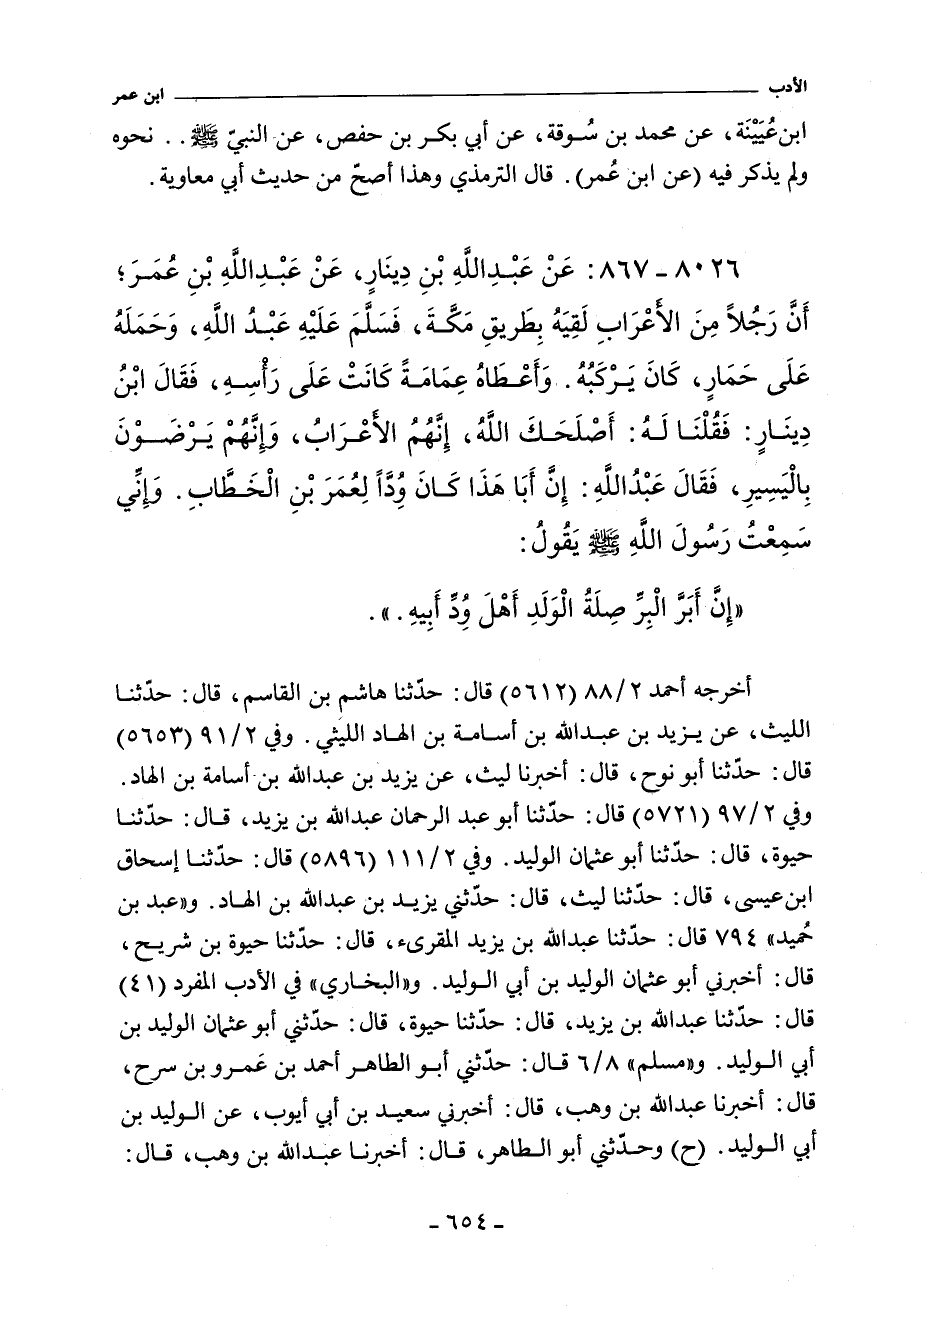 الأدب ـــــــ ابن عمر
ابن عُيَيْنَة، عن محمد بن سُوقة، عن أبي بكر بن حفص، عن النبيّ ﷺ . . نحوه
ولم يذكر فيه (عن ابن عُمر). قال الترمذي وهذا أصحّ من حديث أبي معاوية.
٨٠٢٦ - ٨٦٧: عَنْ عَبْدِاللَّهِ بْنِ دِينَارٍ، عَنْ عَبْدِاللَّهِ بْنِ عُمَرَ؛
أَنَّ رَجُلاً مِنَ الأَعْرَابِ لَقِيَهُ بِطَرِيقِ مَكَّةَ، فَسَلَّمَ عَلَيْهِ عَبْدُ اللَّهِ، وَحَمَلَهُ
عَلَى حَمَارٍ، كَانَ يَرْكَبُهُ. وَأَعْطَاهُ عِمَامَةً كَانَتْ عَلَى رَأْسِهِ، فَقَالَ ابْنُ
دِينَارٍ: فَقُلْنَا لَهُ: أَصْلَحَكَ اللَّهُ، إِنَّهُمُ الأَعْرَابُ، وَإِنَّهُمْ يَرْضَوْنَ
بِالْيَسِيرِ، فَقَالَ عَبْدُاللَّهِ: إِنَّ أَبَا هَذَا كَانَ وُدًّا لِعُمَرَ بْنِ الْخَطَّابِ. وَإِنِّي
سَمِعْتُ رَسُولَ اللَّهِ ﷺ يَقُولُ:
«إِنَّ أَبَرَّ الْبِرِّ صِلَةُ الْوَلَدِ أَهْلَ وُدِّ أَبِيهِ.».
أخرجه أحمد ٢/ ٨٨ (٥٦١٢) قال: حدّثنا هاشم بن القاسم، قال: حدّثنا
الليث، عن يزيد بن عبدالله بن أسامة بن الهاد الليثي. وفي ٢/ ٩١ (٥٦٥٣)
قال: حدّثنا أبو نوح، قال: أخبرنا ليث، عن يزيد بن عبدالله بن أسامة بن الهاد.
وفي ٢/ ٩٧ (٥٧٢١) قال: حدّثنا أبو عبد الرحمان عبدالله بن يزيد، قال: حدّثنا
حيوة، قال: حدّثنا أبو عثمان الوليد. وفي ٢/ ١١١ (٥٨٩٦) قال: حدّثنا إسحاق
ابن عيسى، قال: حدّثنا ليث، قال: حدّثني يزيد بن عبدالله بن الهاد. و«عبد بن
حُميد» ٧٩٤ قال: حدّثنا عبدالله بن يزيد المقرىء، قال: حدّثنا حيوة بن شريح،
قال: أخبرني أبو عثمان الوليد بن أبي الوليد. و«البخاري» في الأدب المفرد (٤١)
قال: حدّثنا عبدالله بن يزيد، قال: حدّثنا حيوة، قال: حدّثني أبو عثمان الوليد بن
أبي الوليد. و«مسلم» ٨/ ٦ قال: حدّثني أبو الطاهر أحمد بن عَمرو بن سرح،
قال: أخبرنا عبدالله بن وهب، قال: أخبرني سعيد بن أبي أيوب، عن الوليد بن
أبي الوليد. (ح) وحدّثني أبو الطاهر، قال: أخبرنا عبدالله بن وهب، قال:
- ٦٥٤ -